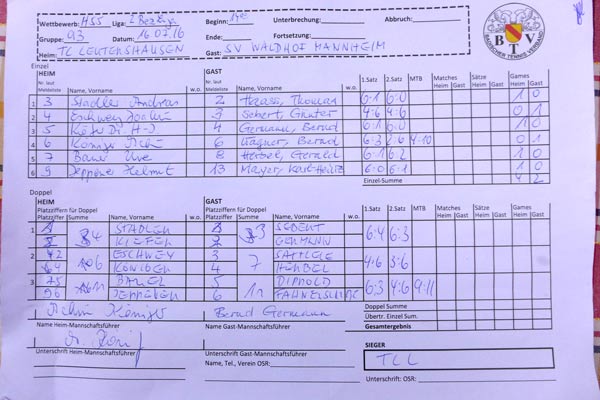 Wettbewerb: H55 Liga: 2. Bez Beginn: Unterbrechung: Abbruch:
Gruppe: 93 Datum: 16.07.16 Ende: Fortsetzung:
Heim: TC LEUTERSHAUSEN Gast: SV WALDHOF MANNHEIM
BADISCHER TENNIS VERBAND
BTV
Einzel
HEIM GAST 1.Satz 2.Satz MTB Matches Sätze Games
Nr. laut Meldeliste Name, Vorname w.o. Nr. laut Meldeliste Name, Vorname w.o. Heim Gast Heim Gast Heim Gast
1 3 Stadler Andreas 2 Haass, Thomas 6:1 6:0 1 0
2 4 Eschwey 3 Sebert, Günter 4:6 4:6 0 1
3 5 H-J. 4 Germann, Bernd 6:1 6:0 1 0
4 6 König 6 Wagner, Bernd 6:3 2:6 4:10 0 1
5 7 Bauer Uwe 8 Herbel, Gerald 6:1 6:2 1 0
6 9 Deppner Helmut 13 Mayer, Karl-Heinz 6:0 6:1 1 0
Einzel-Summe 4 2
Doppel
HEIM GAST 1.Satz 2.Satz MTB Matches Sätze Games
Platzziffern für Doppel Platzziffern für Doppel Heim Gast Heim Gast Heim Gast
Platzziffer Summe Name, Vorname w.o. Platzziffer Summe Name, Vorname w.o.
1 4 STADLER 3 SEBERT 6:4 6:3
KIEFER GERMANN
2 6 ESCHWEY 3 7 4:6 3:6
4 4 HERBEL
3 BAUER 5 11 DIPPOLD 6:3 4:6 9:11
6
Doppel Summe
Übertr. Einzel Sum.
Gesamtergebnis
Achim König Bernd Germann
Name Heim-Mannschaftsführer Name Gast-Mannschaftsführer
Unterschrift Heim-Mannschaftsführer Unterschrift Gast-Mannschaftsführer
SIEGER
TCL
Name, Tel., Verein OSR:
Unterschrift: OSR: